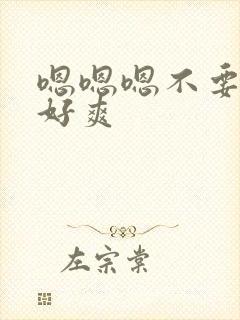 嗯嗯嗯不要
好爽
左宗棠